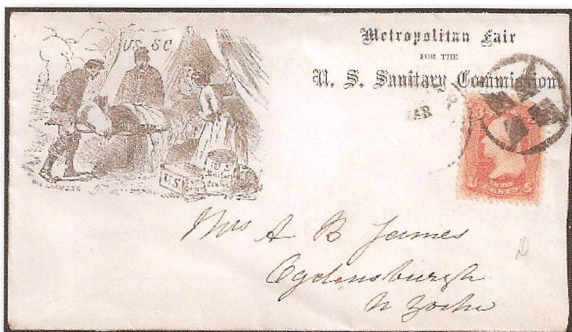 U.S. SC
Metropolitan Fair
FOR THE
U. S. Sanitary Commission
AR
U.S
Mrs A B James
Ogdensburgh
N Yorke